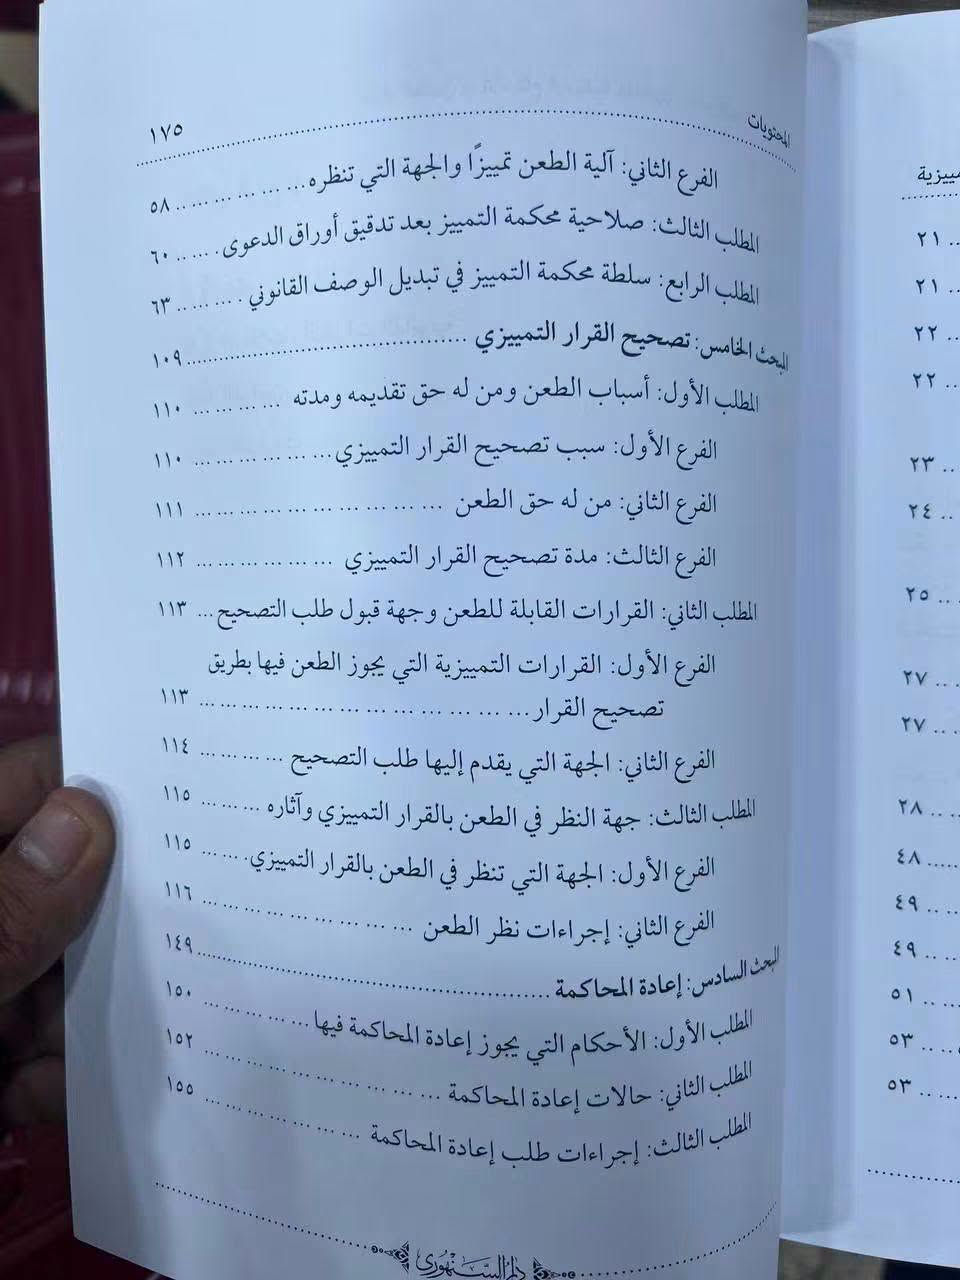 المحتويات ١٧٥
الفرع الثاني: آلية الطعن تمييزًا والجهة التي تنظره ... ... ... ... .. ٥٨
المطلب الثالث: صلاحية محكمة التمييز بعد تدقيق أوراق الدعوى. ... .. ٦٠
المطلب الرابع: سلطة محكمة التمييز في تبديل الوصف القانوني . ... ... .. ٦٣
المبحث الخامس: تصحيح القرار التمييزي ................................ ١٠٩
المطلب الأول: أسباب الطعن ومن له حق تقديمه ومدته ... ... ... ... ١١٠
الفرع الأول: سبب تصحيح القرار التمييزي... ... ... ... ... ... ١١٠
الفرع الثاني: من له حق الطعن ... ... ... ... ... ... ... ... ... ... ١١١
الفرع الثالث: مدة تصحيح القرار التمييزي ... ... ... ... ... ... ١١٢
المطلب الثاني: القرارات القابلة للطعن وجهة قبول طلب التصحيح... ١١٣
الفرع الأول: القرارات التمييزية التي يجوز الطعن فيها بطريق
تصحيح القرار... ... ... ... ... ... ... ... ... ... ... ... ... ١١٣
الفرع الثاني: الجهة التي يقدم إليها طلب التصحيح ... ... ... ... ١١٤
المطلب الثالث: جهة النظر في الطعن بالقرار التمييزي وآثاره ... ... ... ١١٥
الفرع الأول: الجهة التي تنظر في الطعن بالقرار التمييزي. ... ... ١١٥
الفرع الثاني: إجراءات نظر الطعن ... ... ... ... ... ... ... ... ١١٦
المبحث السادس: إعادة المحاكمة ................................ ١٤٩
المطلب الأول: الأحكام التي يجوز إعادة المحاكمة فيها ... ... ... ... ١٥٠
المطلب الثاني: حالات إعادة المحاكمة ... ... ... ... ... ... ... ... ١٥٢
المطلب الثالث: إجراءات طلب إعادة المحاكمة ... ... ... ... ... ... ١٥٥
دار السنهوري
٢١
٢١
٢٢
٢٢
٢٣
٢٤
٢٥
٢٧
٢٧
٢٨
٤٨
٤٩
٤٩
٥١
٥٣
٥٣